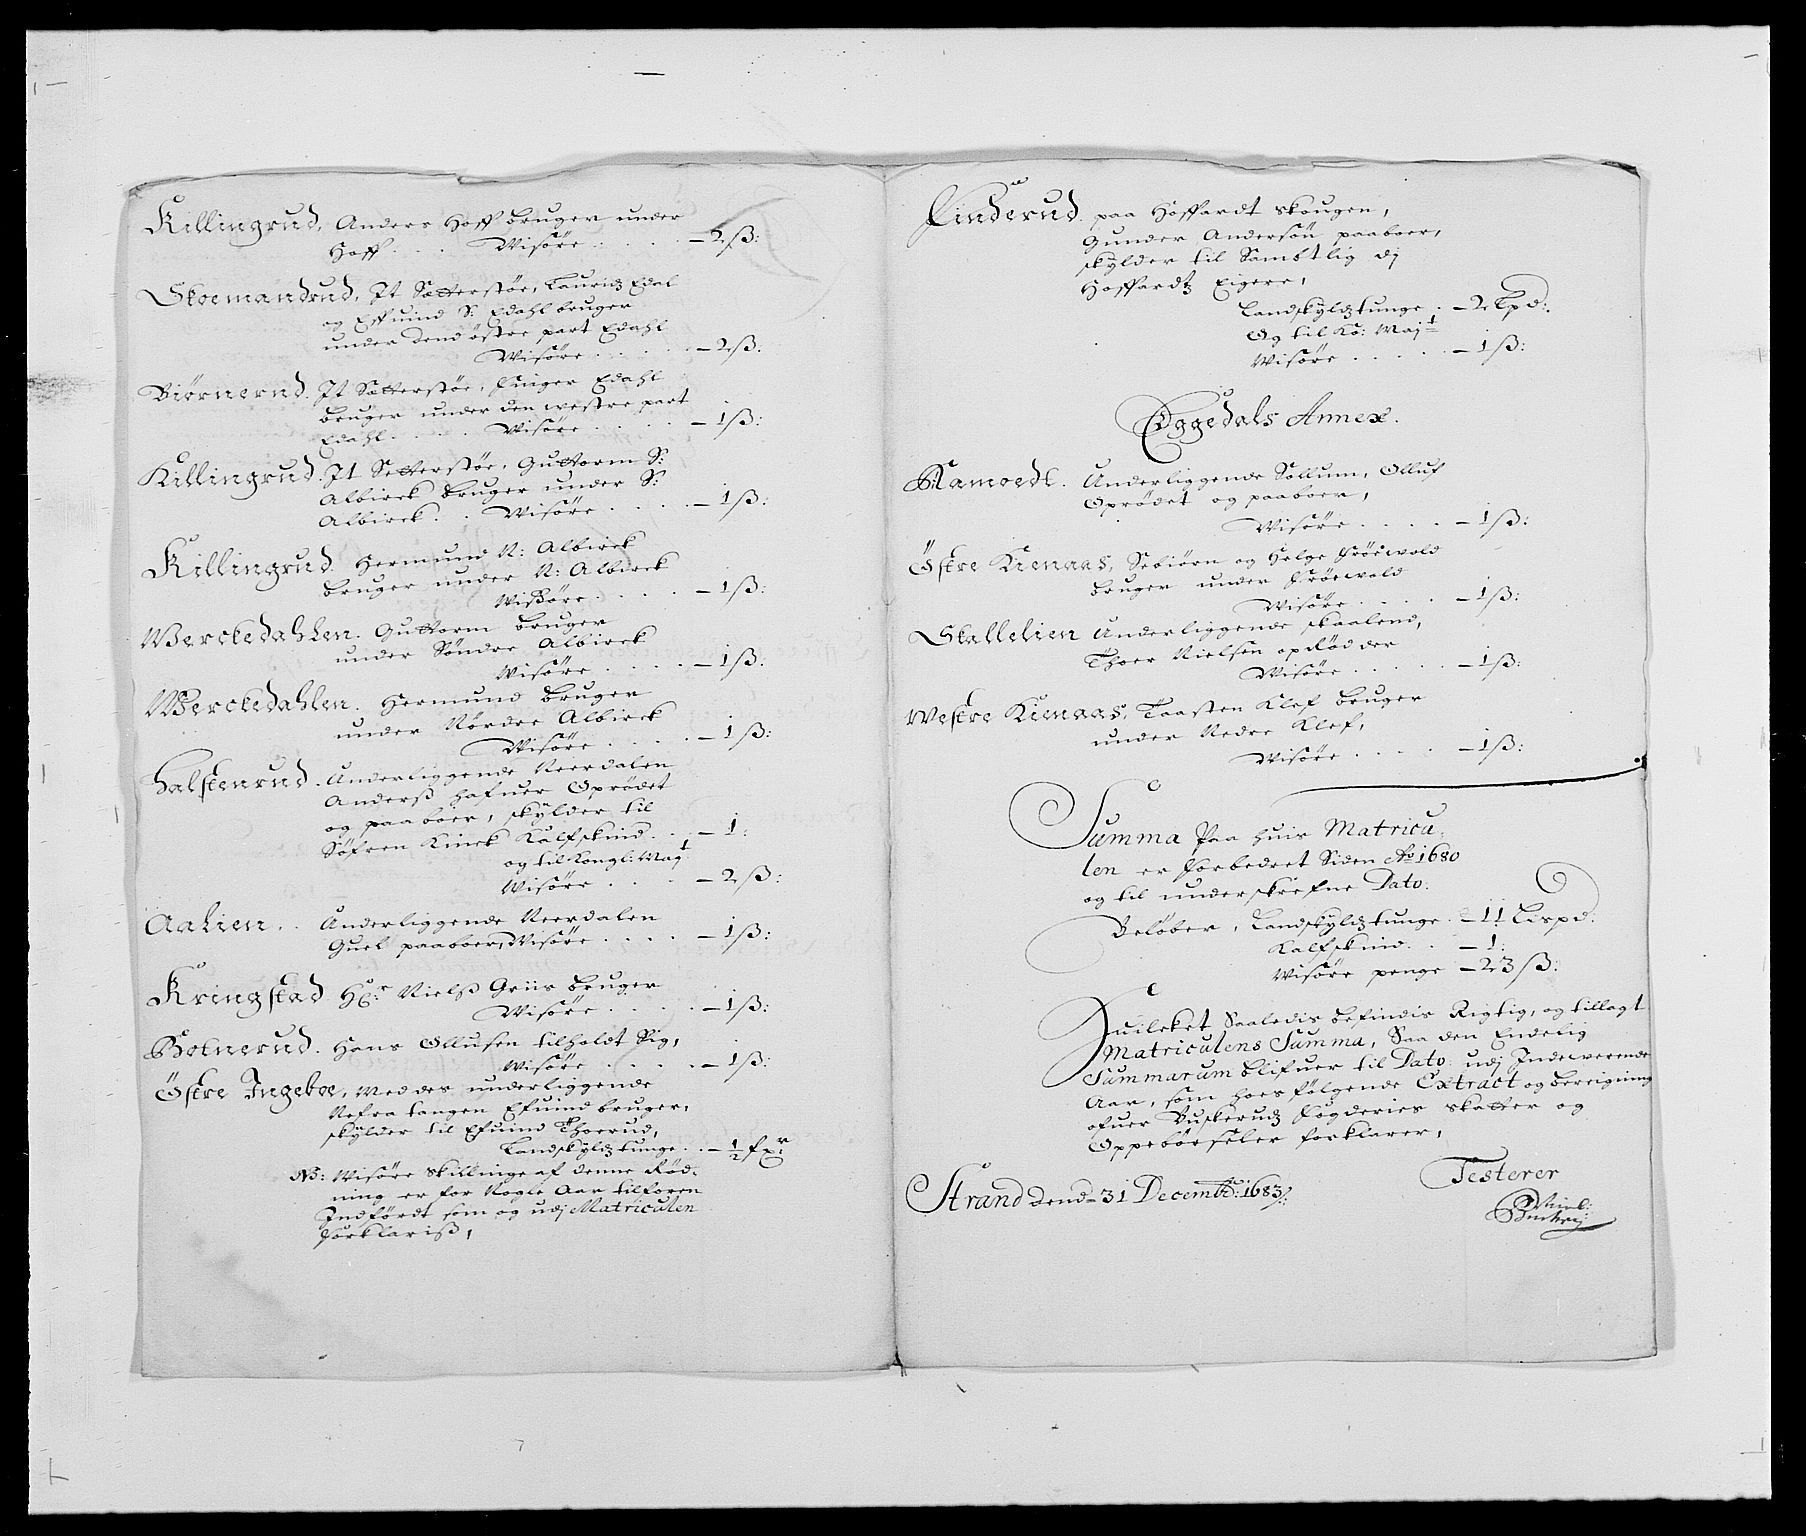 Killingrud. Anders Hoff bruger under
Hoff . . . Wisøre . . . . – 2 ß:
Skoemandrud, It Sætterstøe, Lauridz Edal
og Effuind S: Edahl bruger
under dend østre part Edahl
Wisøre . . . . – 2 ß:
Biørnerud. It Sætterstøe, Finger Edahl
bruger under den westre part
Edahl . . . . Wisøre . . . . – 1 ß:
Killingrud. It Setterstøe, Guttorm S:
Albirck bruger under S:
Albirck . . Wisøre . . . . – 1 ß:
Killingrud. Hermund N: Albirck
bruger under N: Albirck
Wisøre . . . . – 1 ß:
Werckedahlen. Guttorm bruger
under Søndre Albirck
Wisøre . . . . – 1 ß:
Werckedahlen. Hermund bruger
under Nørdre Albirck
Wisøre . . . . – 1 ß:
Halstenrud. Underliggende Neerdalen
Anderß hafuer Oprødet
og paaboer, skylder til
Søfren Kinck Kalfskind . . – 1:
og til Kongl: Mayt:
Wisøre . . . – 2 ß:
Aalien . . Underliggende Neerdalen
Guel paaboer, Wisøre . . . . – 1 ß:
Kringstad Hr: Nielß Griis bruger
Wisøre . . . . – 1 ß:
Bolnerud. Hans Ollusen tilholdt Sig,
Wisøre . . . . – 1 ß:
Østre Ingeboe, Med des underliggende
Nefra tangen Efuind bruger,
skylder til Efuind Thoerud,
Landskyldz tunge . . – ½ fxr:
NB: Wisøre skillinge af denne Rød-
ning er for Nogle Aar tilforen
Indførdt som og udj Matriculen
forklariß,
Finderud. paa Hoffardt skougen,
Gunder Andersøn paaboer,
skylder til Sambtlig dj
Hoffardtz Eigere,
Landskyldz tunge . – 2 Lpd:
Og til Ko: Mayt:
Wisøre . . . . . – 1 ß:
Eggedals Annex.
Ramoedt. Underliggende Sollum, Olluf
Oprødet og paaboer,
Wisøre . . . . – 1 ß:
Østre Kienaas, Sebiørn og Helge Frøswold
bruger under Frøswold
Wisøre . . . . – 1 ß:
Skallelien Underliggende skaalend,
Thoer Nielsøn opRødder
Wisøre . . . . . – 1 ß:
Westre Kienaas, Taasten Klef bruger
under Nedre Klef,
Wisøre . . . . – 1 ß:
Summa Paa huis Matricu-
len er forbedret Siden Ao 1680
og til underskrefne Dato.
Beløber, Landskyldz tunge . – 11 Lispd:
Kalfskind . . – 1:
Wisøre penge – 23 ß:
Huilcket Saaledis befindis Rigtig, og tillagt
Matriculens Summa, Saa den Endelig
Summarum blifuer til Dato udj Indewerende
Aar, som hoes følgende Extract og bereigning
ofuer Buskerudz fogderies skatter og
Oppebørseler forklarer,
Strand dend 31 Decembr: 1683
Testerer